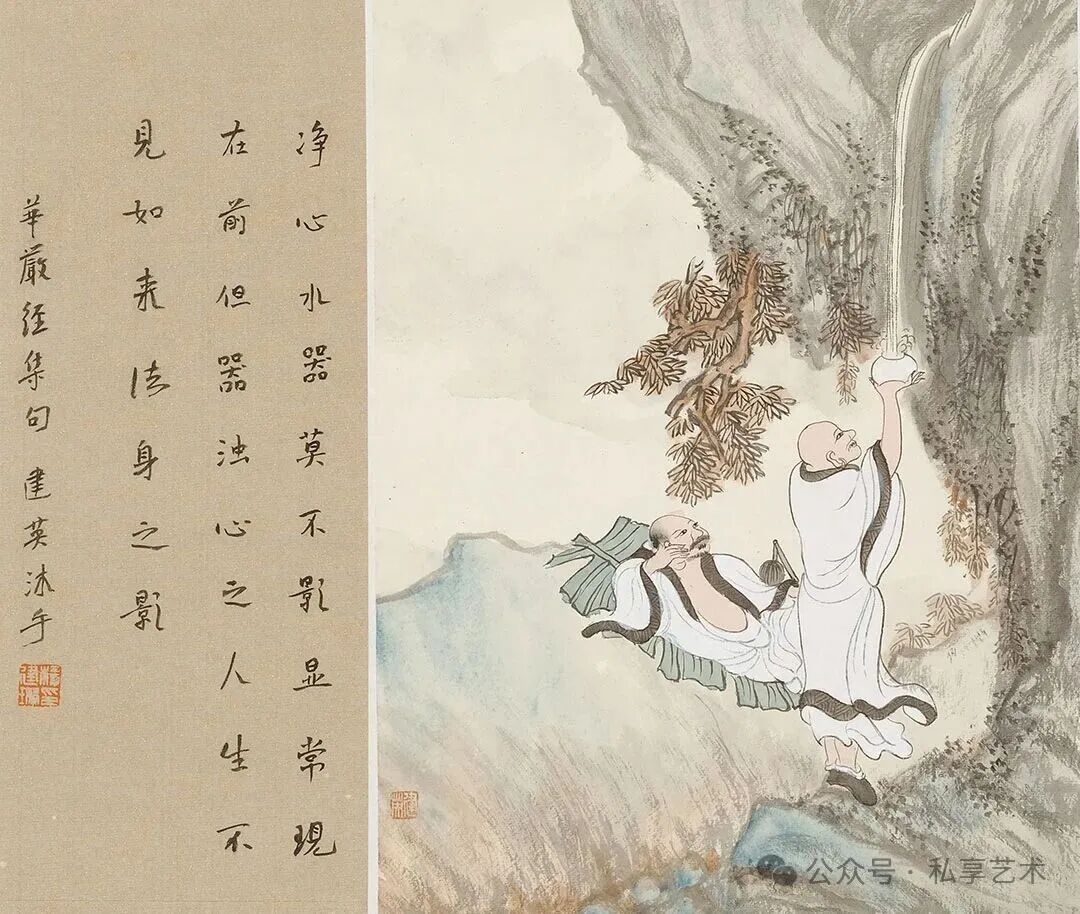 净心水器莫不影显常現
在前但器浊心之人生不
見如来法身之影
華嚴经集句 建英沐手
公众号 · 私享艺术